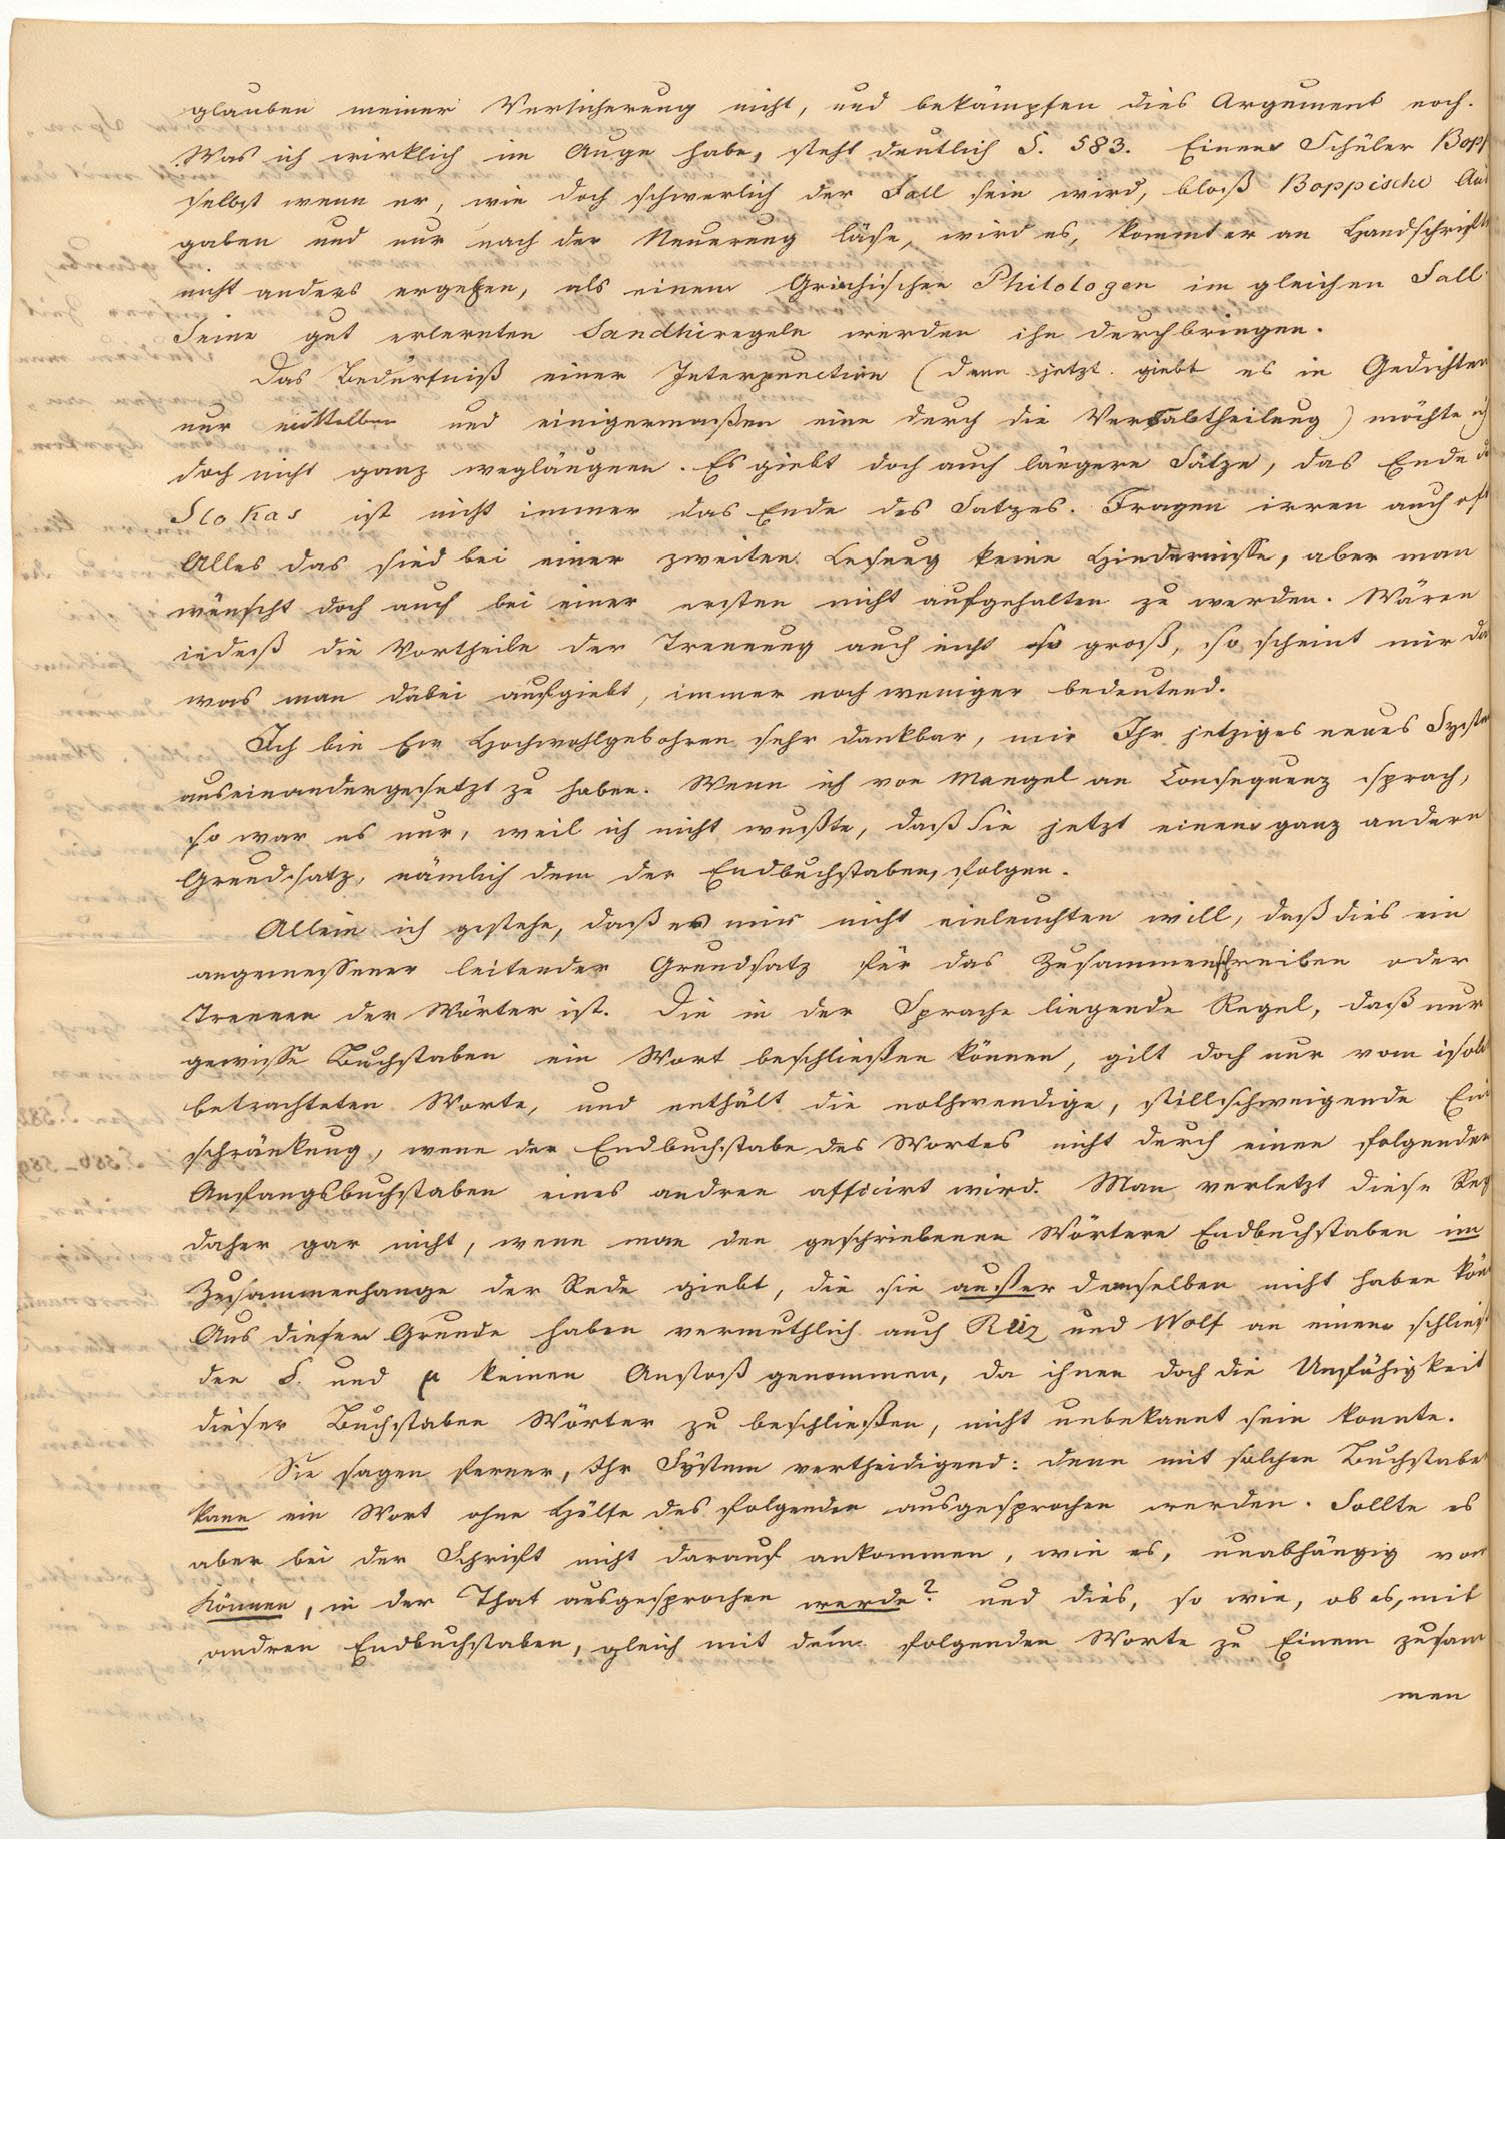 glauben meiner Versicherung nicht, und bekämpfen dies Argument noch.
Was ich wirklich im Auge habe, steht deutlich S. 583. Einem Schüler Bopp
selbst wenn er, wie doch schwerlich der Fall sein wird, bloß Boppische Aus
gaben und nur nach der Neuerung läse, wird es, kommt er an Handschrift
nicht anders ergehen, als einem Griechischen Philologen im gleichen Fall
Seine gut erlernten Sandhiregeln werden ihn durchbringen.
Das Bedürfniß einer Interpunction (denn jetzt giebt es in Gedichten
nur mittelbar und einigermaßen eine durch die Versabtheilung) möchte ich
doch nicht ganz wegläugnen. Es giebt doch auch längere Sätze, das Ende d
Slokas ist nicht immer das Ende des Satzes. Fragen irren auch oft
Alles das sind bei einer zweiten Lesung keine Hindernisse, aber man
wünscht doch auch bei einer ersten nicht aufgehalten zu werden. Wären
indeß die Vortheile der Trennung auch nicht so groß, so scheint mir da
was man dabei aufgiebt, immer noch weniger bedeutend.
Ich bin Ew Hochwohlgebohren sehr dankbar, mir Ihr jetziges neues System
auseinandergesetzt zu haben. Wenn ich von Mangel an Consequenz sprach,
so war es nur, weil ich nicht wußte, daß Sie jetzt einem ganz andern
Grundsatz, nämlich dem der Endbuchstaben, folgen.
Allein ich gestehe, daß es mir nicht einleuchten will, daß dies ein
angemessener leitender Grundsatz für das Zusammenschreiben oder
Trennen der Wörter ist. Die in der Sprache liegende Regel, daß nur
gewisse Buchstaben ein Wort beschließen können, gilt doch nur vom isolirt
betrachteten Worte, und enthält die nothwendige, stillschweigende Ein
schränkung, wenn der Endbuchstabe des Wortes nicht durch einen folgenden
Anfangsbuchstaben eines andren afficirt wird. Man verletzt diese Reg
daher gar nicht, wenn man den geschriebenen Wörtern Endbuchstaben im
Zusammenhange der Rede giebt, die sie außer demselben nicht haben kön
Aus diesem Grunde haben vermuthlich auch Reiz und Wolf an einem schließ
den δ. und μ keinen Anstoß genommen, da ihnen doch die Unfähigkeit
dieser Buchstaben Wörter zu beschließen, nicht unbekannt sein konnte.
Sie sagen ferner, Ihr System vertheidigend: denn mit solchen Buchstabe
kann ein Wort ohne Hülfe des folgenden ausgesprochen werden. Sollte es
aber bei der Schrift nicht darauf ankommen, wie es, unabhängig von
Können, in der That ausgesprochen werde? und dies, so wie, ob es, mit
andren Endbuchstaben, gleich mit dem folgenden Worte zu Einem zusam
men